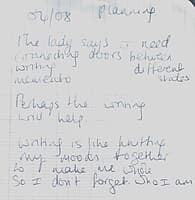 04/08 Planning
The lady says I need
connecting doors between
writing different
memento slides
Perhaps the writing
will help
Writing is like knitting
my moods together
to make me whole
So I don't forget who I am